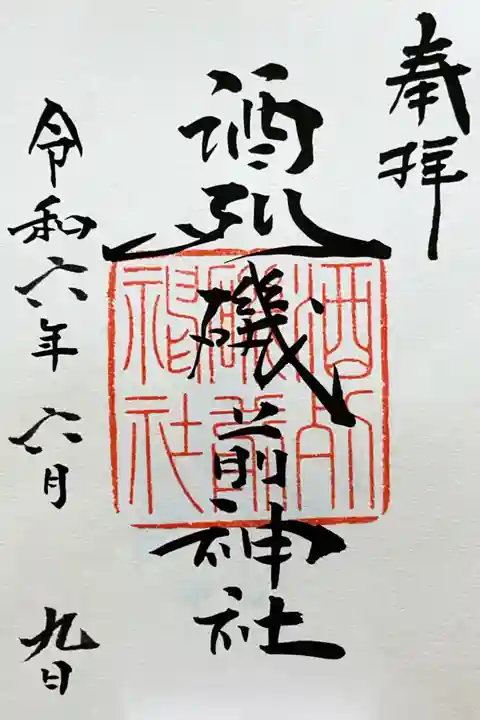 奉拝
酒列磯前神社
令和六年 六月 九日
酒列
磯前
神社